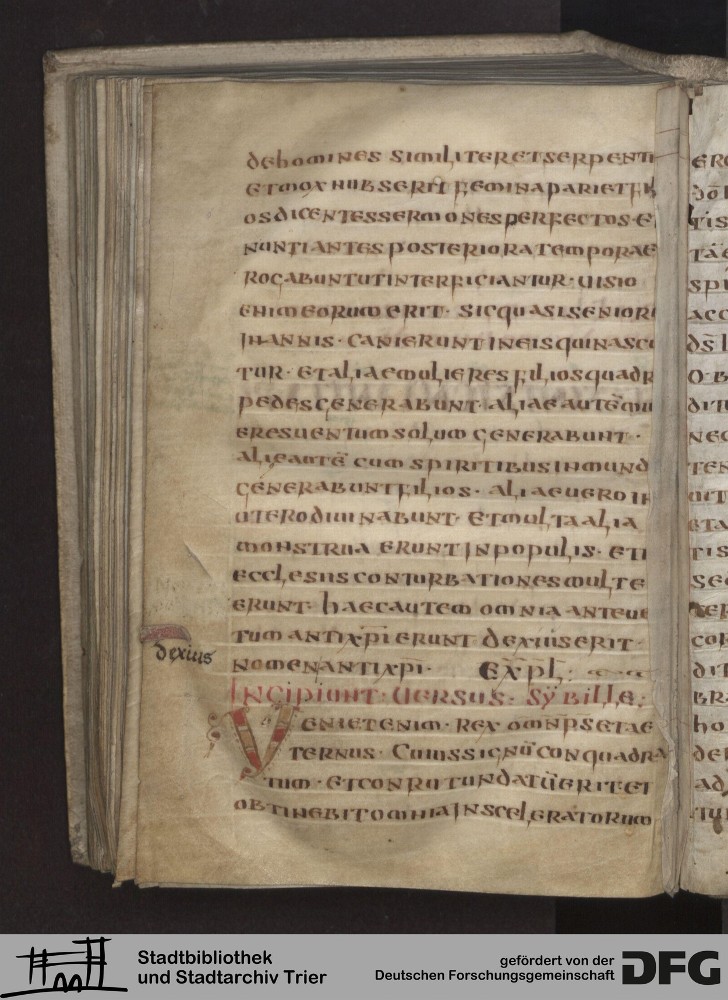 dehomines similiter et serpenti
et mox nubserit femina pariet fi
os dicentes sermones perfectos et
nuntiantes posteriora tempora e
rogabunt ut interficiantur · uisio
enim eorum erit · sic quasi seniori
inannis · canierunt in eis qui nasce
tur · et aliae mulieres filios quadr
pedes generabunt · aliae autē mu
eres uentum solum generabunt ·
aliae autē cum spiritibus inmund
generabunt filios · aliae uero in
utero diuinabunt · et multa alia
monstrua erunt in populis · eti
ecclesiis conturbationes multe
erunt · haec autem omnia ante ue
tum antixp̄i erunt dexius erit
nomen antixp̄i · Exp̄l :
Incipiunt · uersus · sybille ;
Veniet enim · rex omnp̄s et ae
ternus · Cuius signū conquadra
tum · et conrotundatū erit et
obtinebit omnia in sceleratorum
dexius
Stadtbibliothek
und Stadtarchiv Trier
gefördert von der
Deutschen Forschungsgemeinschaft
DFG